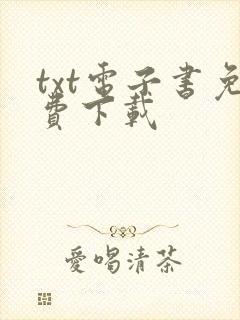 txt電子書免
費下載
愛喝清茶